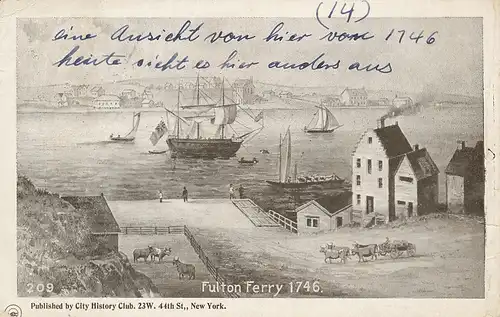 (14)
eine Ansicht von hier vom 1746
heute sieht es hier anders aus
209
Fulton Ferry 1746.
Published by City History Club. 23W. 44th St., New York.